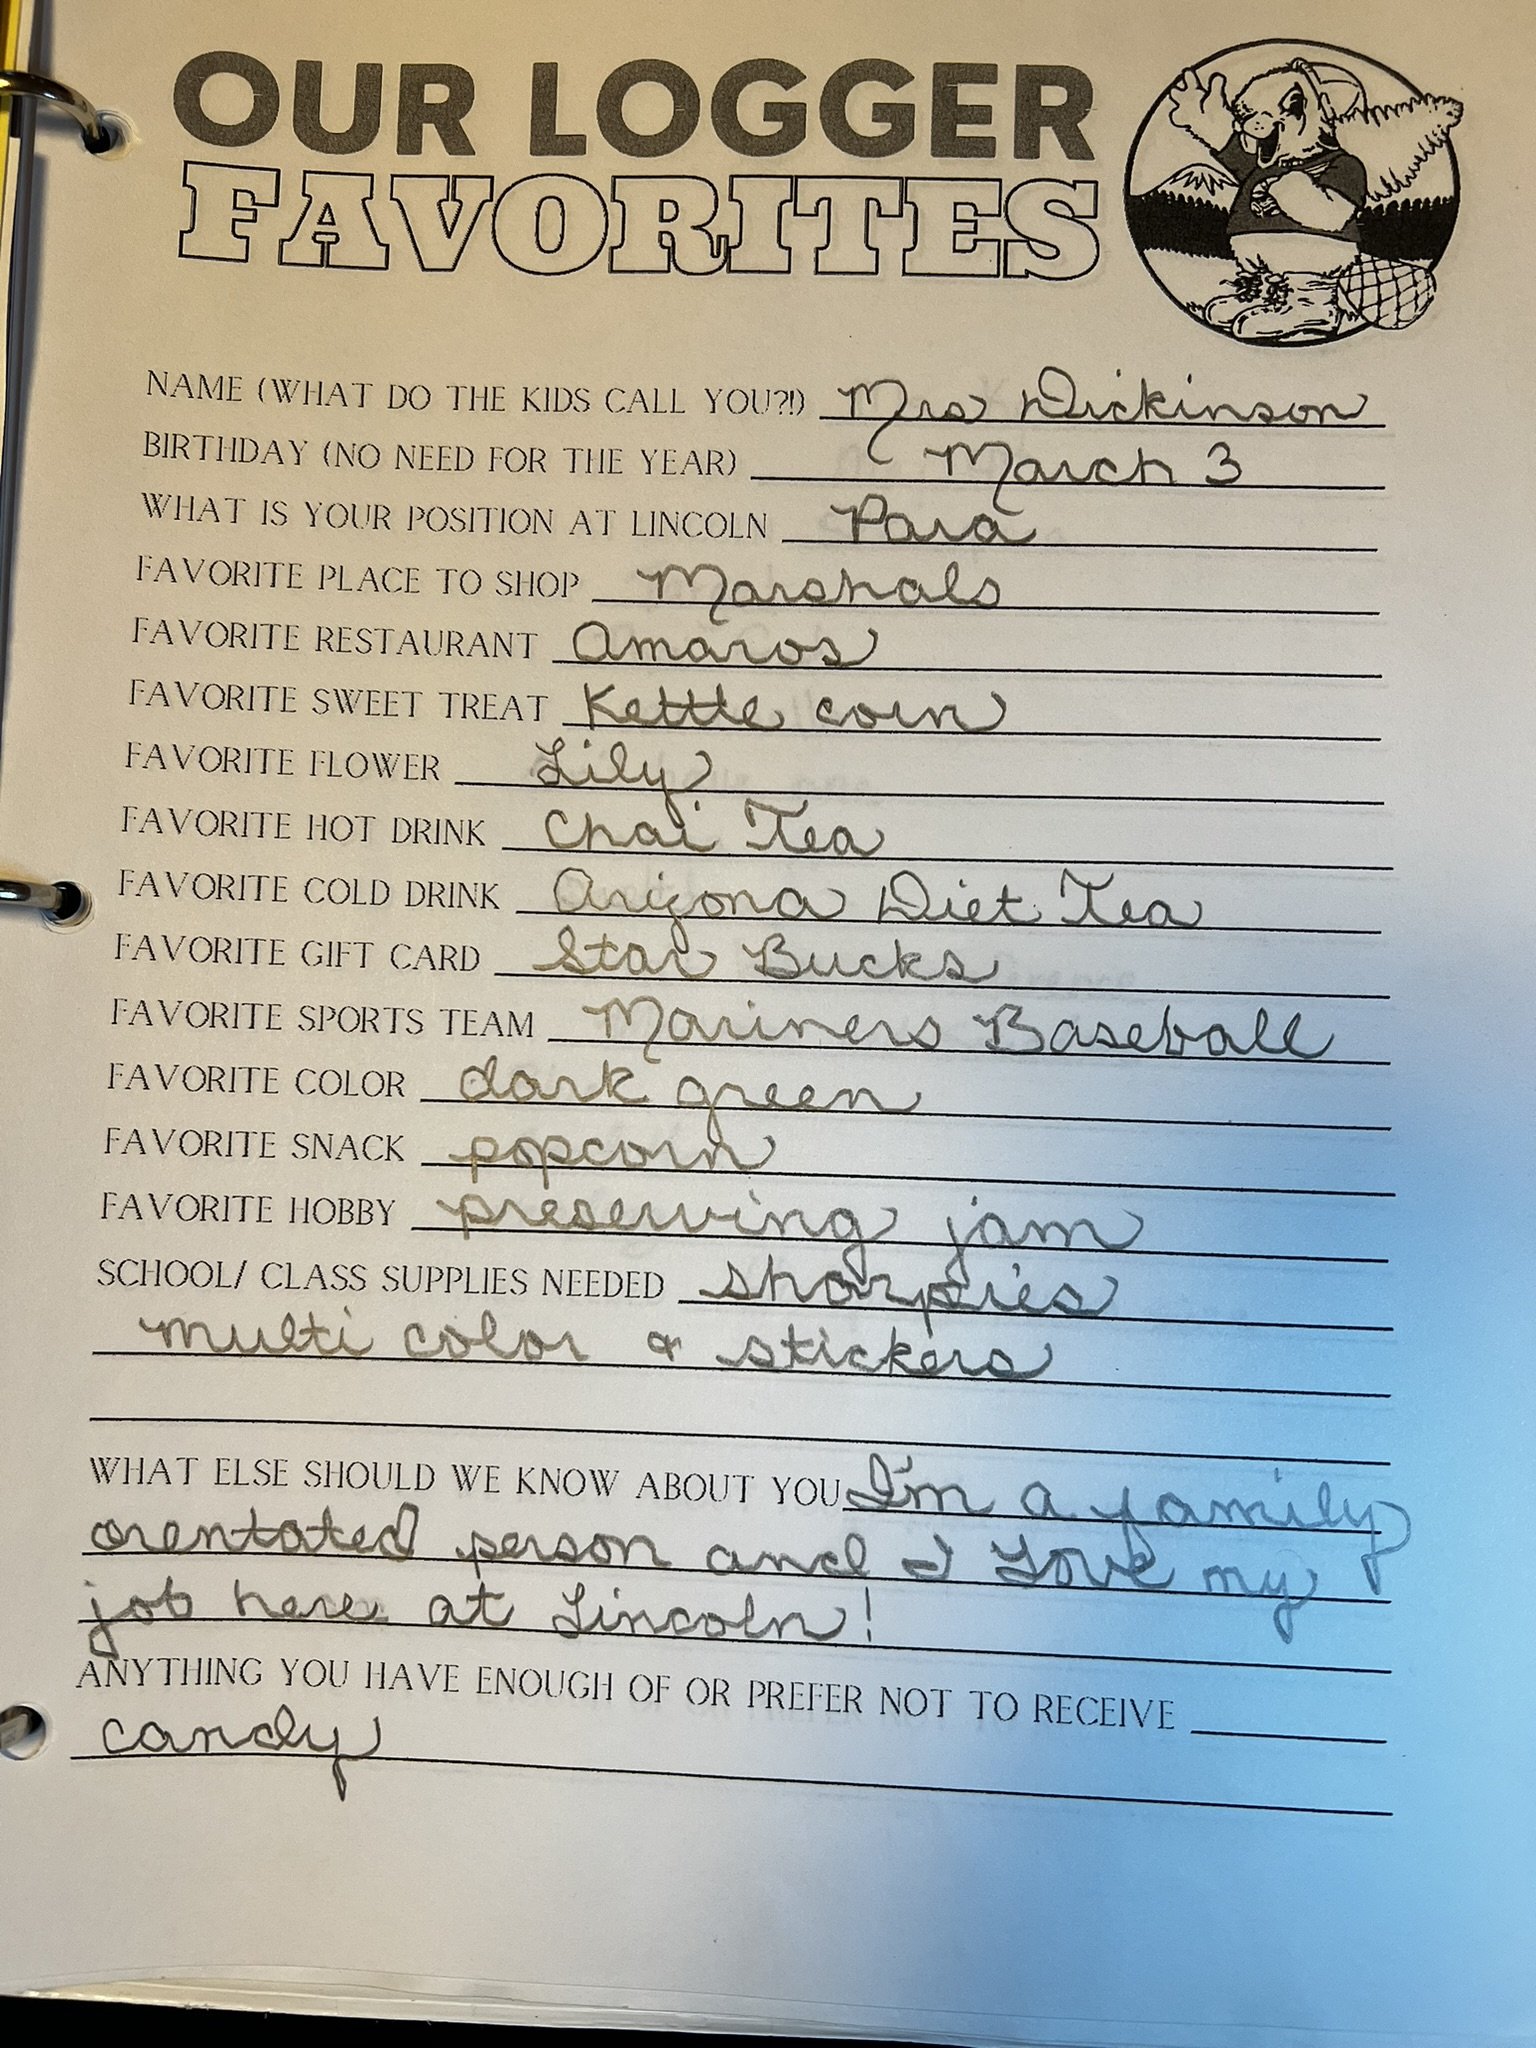 OUR LOGGER
FAVORITES
NAME (WHAT DO THE KIDS CALL YOU?!) Mrs Dickinson
BIRTHDAY (NO NEED FOR THE YEAR) March 3
WHAT IS YOUR POSITION AT LINCOLN Para
FAVORITE PLACE TO SHOP Marshals
FAVORITE RESTAURANT Amaros
FAVORITE SWEET TREAT Kettle corn
FAVORITE FLOWER Lily
FAVORITE HOT DRINK Chai Tea
FAVORITE COLD DRINK Arizona Diet Tea
FAVORITE GIFT CARD Star Bucks
FAVORITE SPORTS TEAM Mariners Baseball
FAVORITE COLOR dark green
FAVORITE SNACK popcorn
FAVORITE HOBBY preserving jam
SCHOOL/ CLASS SUPPLIES NEEDED sharpies
multi color & stickers
WHAT ELSE SHOULD WE KNOW ABOUT YOU I'm a family
orentated person and I Love my
job here at Lincoln!
ANYTHING YOU HAVE ENOUGH OF OR PREFER NOT TO RECEIVE
candy